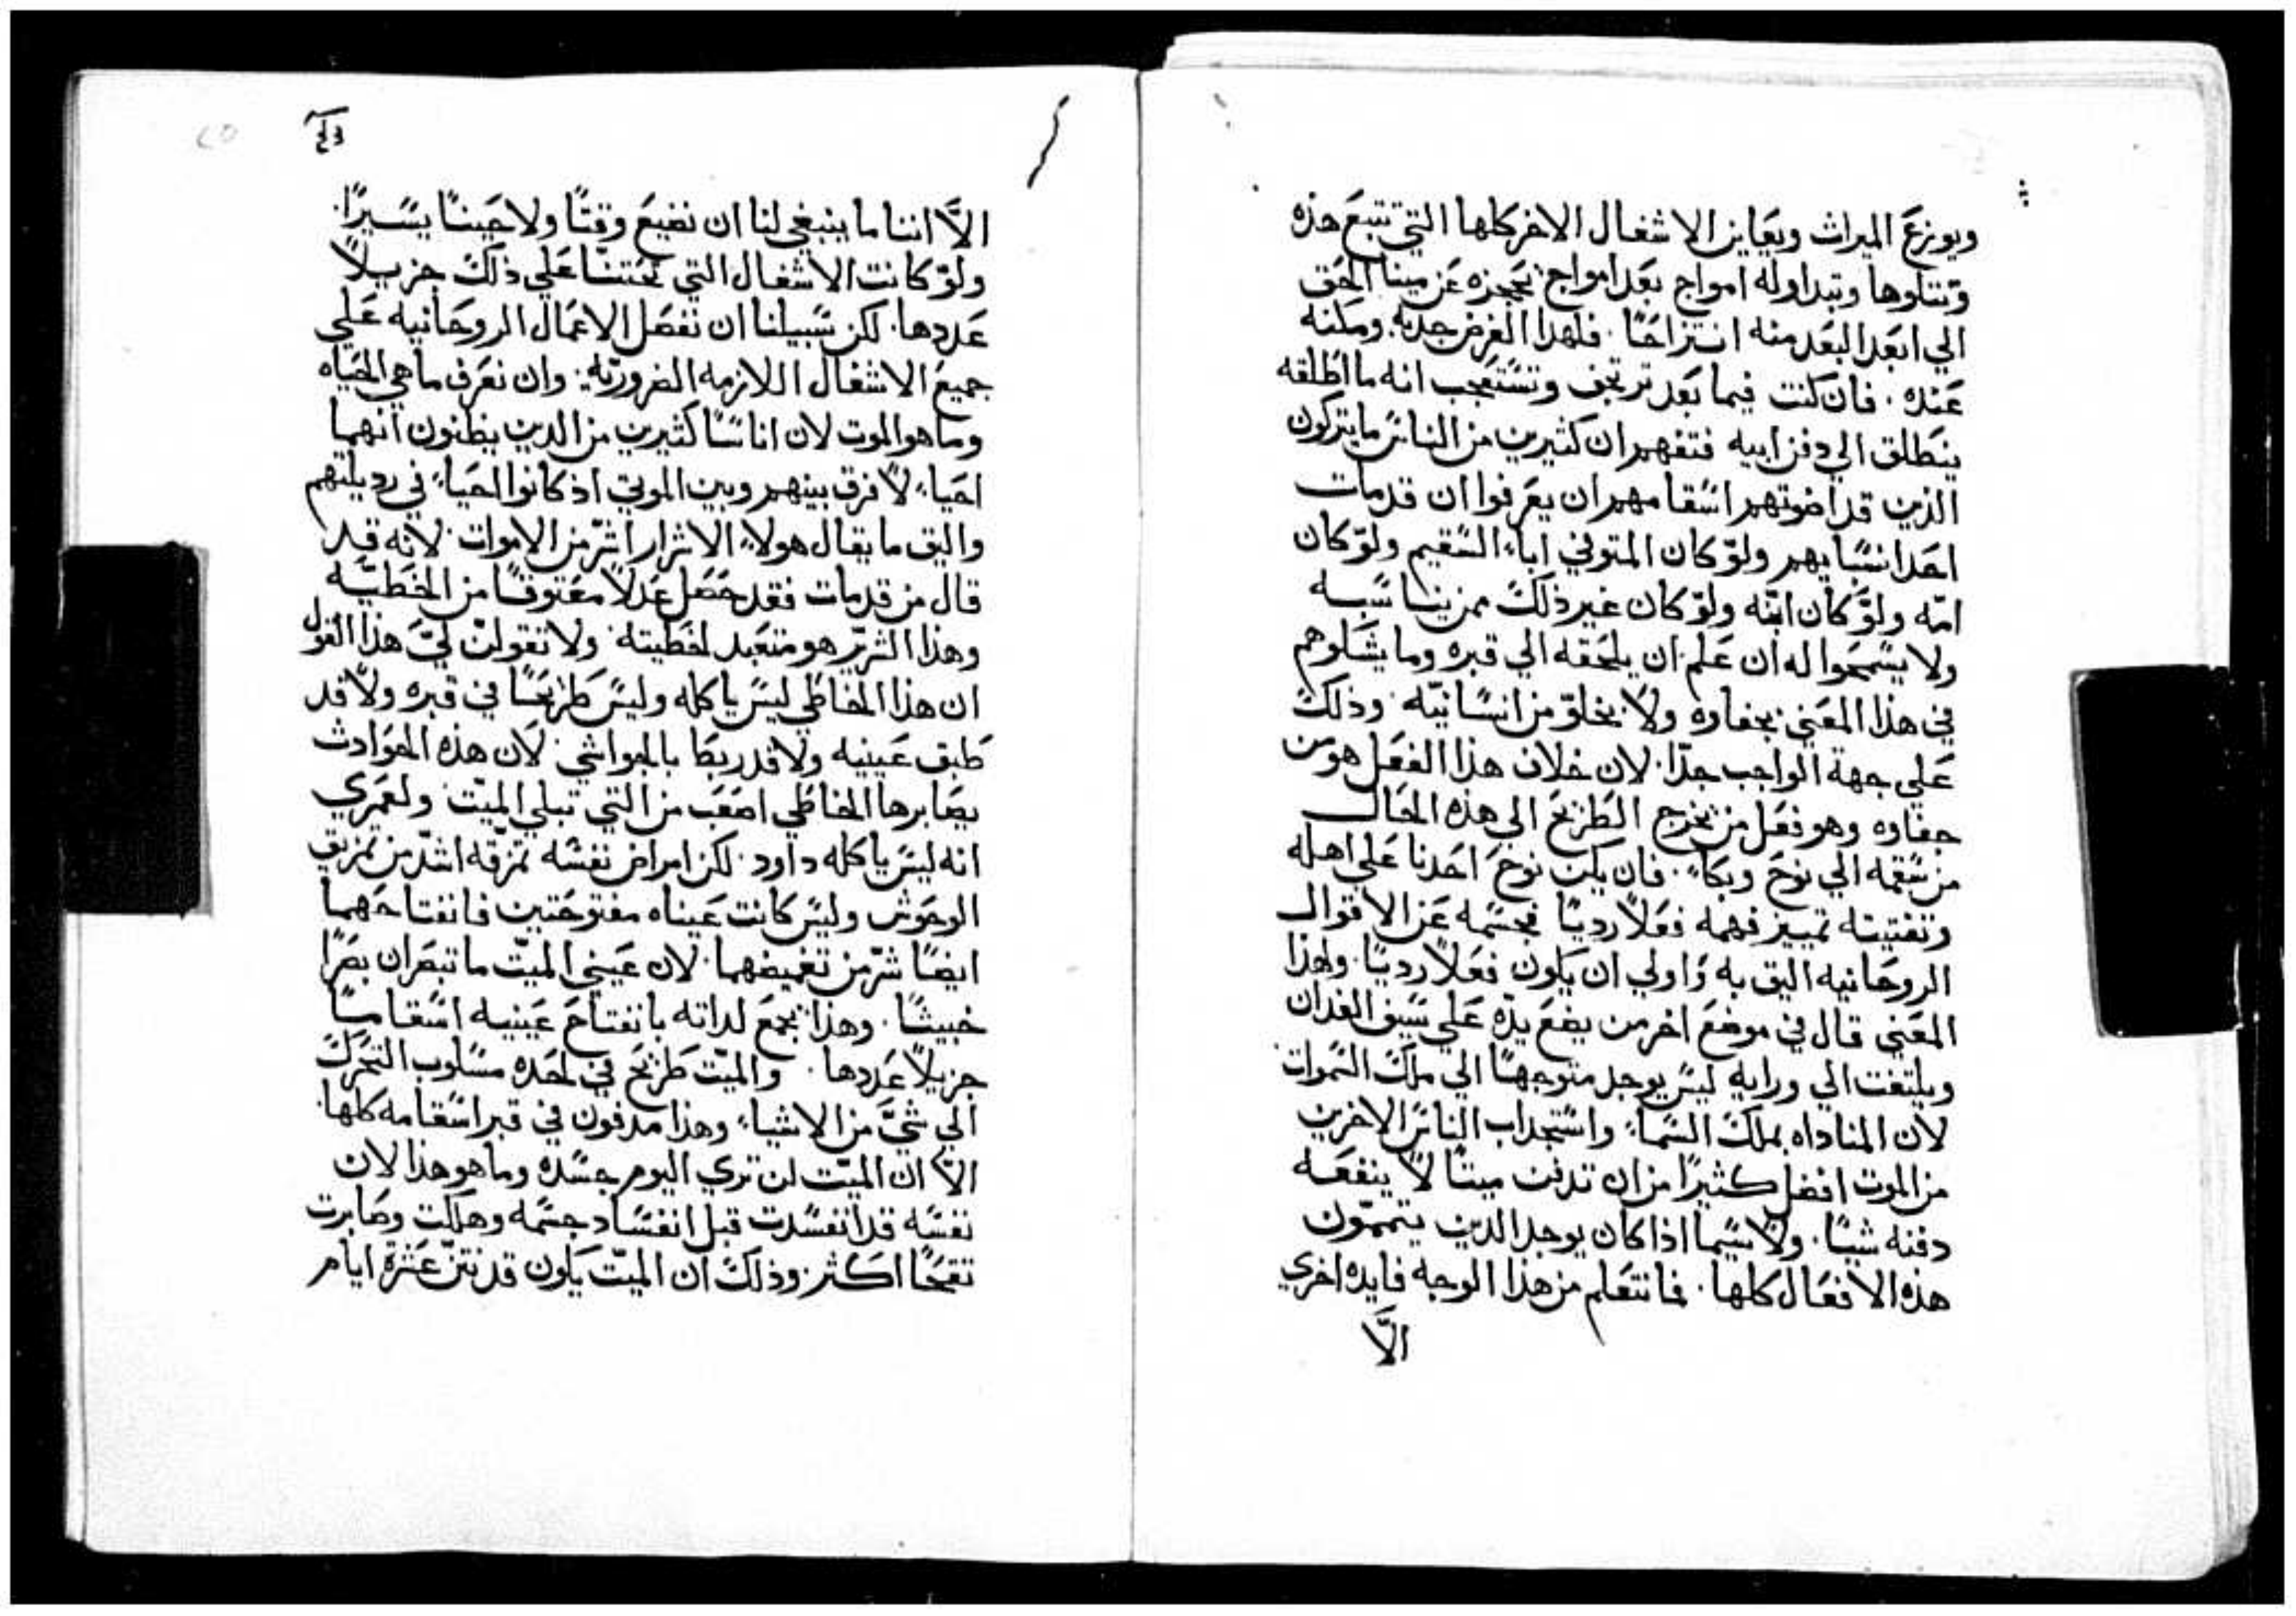 ويوزع الميراث ويعاين الاشغال الاخر كلها التي تتبع هذه
وتتلوها وتبداوله امواج بعد امواج تحجزه عن مينا الحق
الي ابعد البعد منه انتزاحًا. فلهذا الغرض جذبه ومكنه
عنده. فان كنت فيما بعد ترتجف وتستعجب انه ما اطلقه
ينطلق الي دفن ابيه فتفهم ان كثيرين من الناس ما يتركون
الذين قد اضوتهم اسقامهم ان يعرفوا ان قد مات
احد انسبايهم ولوّ كان المتوفي اباء السقيم ولوّ كان
امّه ولوّ كان ابنه ولوّ كان غير ذلك ممن يناسبه
ولا يسمحوا له ان علم ان يلحقه الي قبره وما يشلوهم
في هذا المعني بجفاوه ولا بخلوّ من انسانيّه وذلك
علي جهة الواجب جدّا. لان خلاف هذا الفعل هو من
جفاوه وهو فعل من يخرج الطريح الي هذه الحال
من سقمه الي نوح وبكاء. فان يكن نوح احدنا علي اهله
وتفتيته تمييز فهمه فعلاً رديّا فحسمه عن الاقوال
الروحانيه اليق به واولي ان يكون فعلاً رديّا. ولهذا
المعني قال في موضع اخر من يضع يدّه علي سيف الفدان
ويلتفت الي ورايه ليس يوجد متوجهًا الي ملك السموات
لان المناداه بملك السماء واستجداب الناس الاخرين
من الموت افضل كثيرًا من ان تدفن ميتًا لا ينفعه
دفنه شيًا. ولا سيما اذا كان يوجد الدين يتممّون
هذه الافعال كلها. فما نتعلم من هذا الوجه فايده اخري
الاّ
الاّ اننا ما ينبغي لنا ان نضيع وقتًا ولا حينًا يسيرًا.
ولوّ كانت الاشغال التي تحتنا علي ذلك جزيلاً
عددها. لكن سبيلنا ان نفضل الاعمال الروحانيه علي
جميع الاشغال اللازمه الضروريّه وان نعرف ما هي الحياه
وما هو الموت لان اناسًا كثيرين من الدين يظنون انهما
احياء لا فرق بينهم وبين الموتي اذ كانوا احياء في رديلتهم
واليق ما يقال هولاء الاشرار اشرّ من الاموات لانه قد
قال من قد مات فقد حصل عدلاً معتوقًا من الخطيّه
وهذا الشرير هو متعبد لخطيته ولا تقولن ليّ هذا القول
ان هذا الخاطي ليس ياكله وليس طريحًا في قبره ولا قد
طبق عينيه ولا قد ربط بالحواشي لان هذه الحوادث
يصابرها الخاطي اصعب من التي تبلي الميّت ولعمري
انه ليس ياكله داود. لكن امراض نفسه تمزقه اشدّ من تمزيق
الوحوش وليس كانت عيناه مفتوحتين فانفتاحهما
ايضًا شرّ من تغميضهما. لان عيني الميّت ما تبصران بصرًا
خبيثًا. وهذا يجمع لداته بانفتاح عينيه اسقامًا
جزيلاً عددها. والميّت طريح في لحده مسلوب التحرك
الي شيّ من الاشياء وهذا مدفون في قبر اسقامه كلها.
الاّ ان الميّت لن تري اليوم جسده وما هو هذا لان
نفسه قد انفسدت قبل انفساد جسمه وهلكت وصابرت
تقيحًا اكثر وذلك ان الميّت يكون قد نتن عشرة ايام